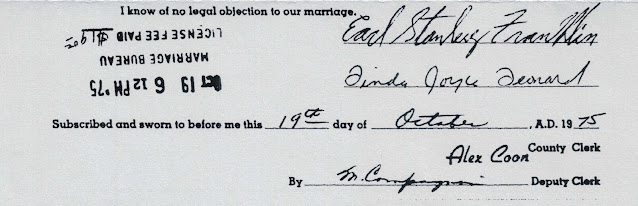 I know of no legal objection to our marriage.
Earl Stanley Franklin
LICENSE FEE PAID
MARRIAGE BUREAU
OCT 19 6 12 PM '75
Linda Joyce
Subscribed and sworn to before me this 19th day of October, A.D. 1975
Alex Coon County Clerk
By M. Deputy Clerk